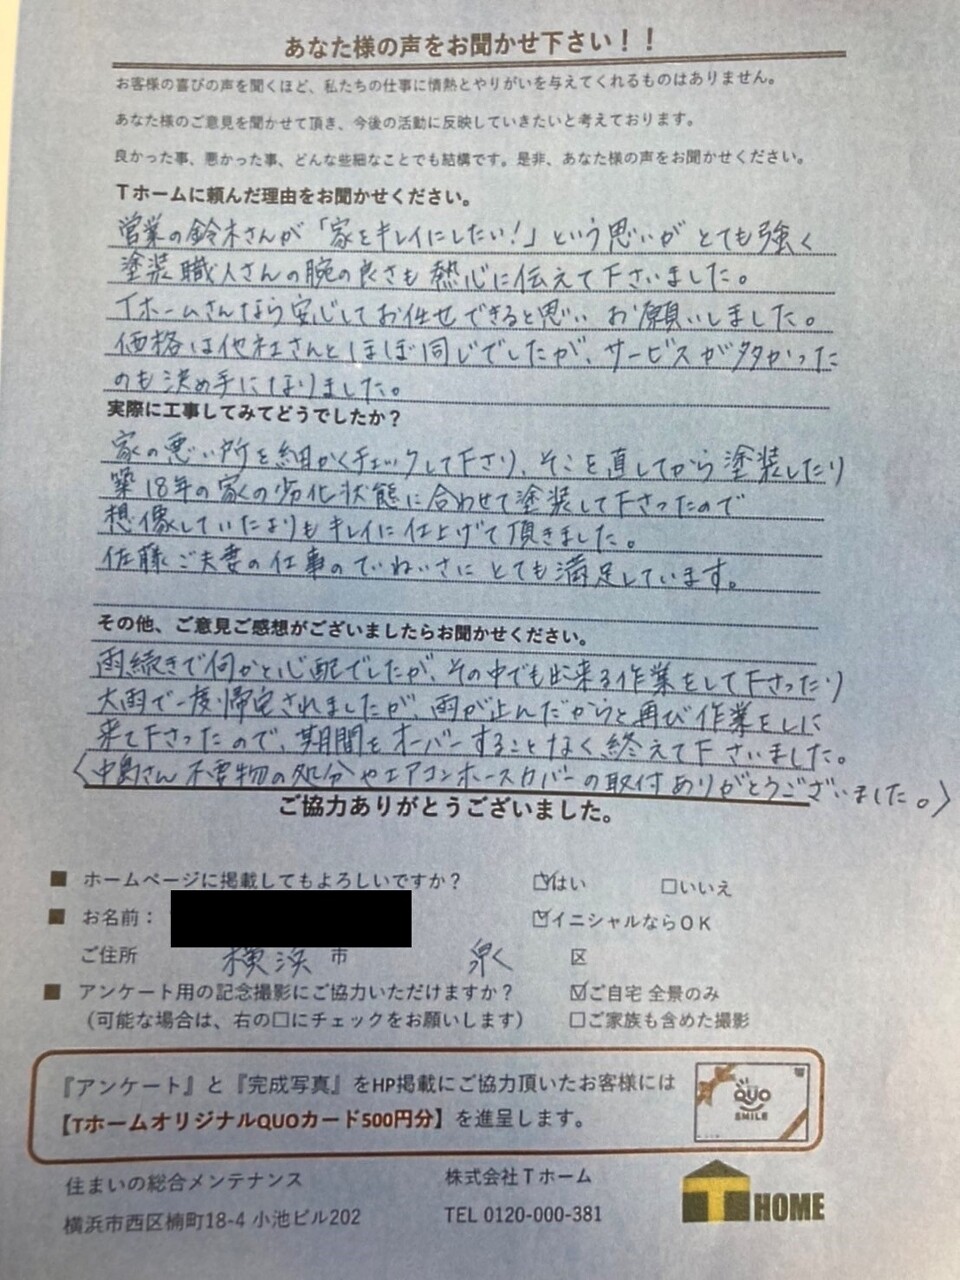 あなた様の声をお聞かせ下さい！！
お客様の喜びの声を聞くほど、私たちの仕事に情熱とやりがいを与えてくれるものはありません。
あなた様のご意見を聞かせて頂き、今後の活動に反映していきたいと考えております。
良かった事、悪かった事、どんな些細なことでも結構です。是非、あなた様の声をお聞かせください。
Tホームに頼んだ理由をお聞かせください。
営業の鈴木さんが「家をキレイにしたい！」という思いがとても強く
塗装職人さんの腕の良さも熱心に伝えて下さいました。
Tホームさんなら安心してお任せできると思い お願いしました。
価格は他社さんとほぼ同じでしたが、サービスが多かった
のも決め手になりました。
実際に工事してみてどうでしたか？
家の悪い所を細かくチェックして下さり、そこを直してから塗装したり
築18年の家の劣化状態に合わせて塗装して下さったので
想像していたよりもキレイに仕上げて頂きました。
佐藤ご夫妻の仕事のていねいさに とても満足しています。
その他、ご意見ご感想がございましたらお聞かせください。
雨続きで何かと心配でしたが、その中でも出来る作業をして下さったり
大雨で一度帰宅されましたが、雨が止んだからと再び作業をしに
来て下さったので、期間をオーバーすることなく終えて下さいました。
〈中島さん 不要物の処分やエアコンホースカバーの取付ありがとうございました。〉
ご協力ありがとうございました。
■ ホームページに掲載してもよろしいですか？ ☑はい □いいえ
■ お名前： ☑イニシャルならOK
ご住所 横浜 市 泉 区
■ アンケート用の記念撮影にご協力いただけますか？ ☑ご自宅 全景のみ
（可能な場合は、右の□にチェックをお願いします） □ご家族も含めた撮影
『アンケート』と『完成写真』をHP掲載にご協力頂いたお客様には
【TホームオリジナルQUOカード500円分】を進呈します。
QUO
SMILE
住まいの総合メンテナンス 株式会社Tホーム
横浜市西区楠町18-4 小池ビル202 TEL 0120-000-381
T HOME